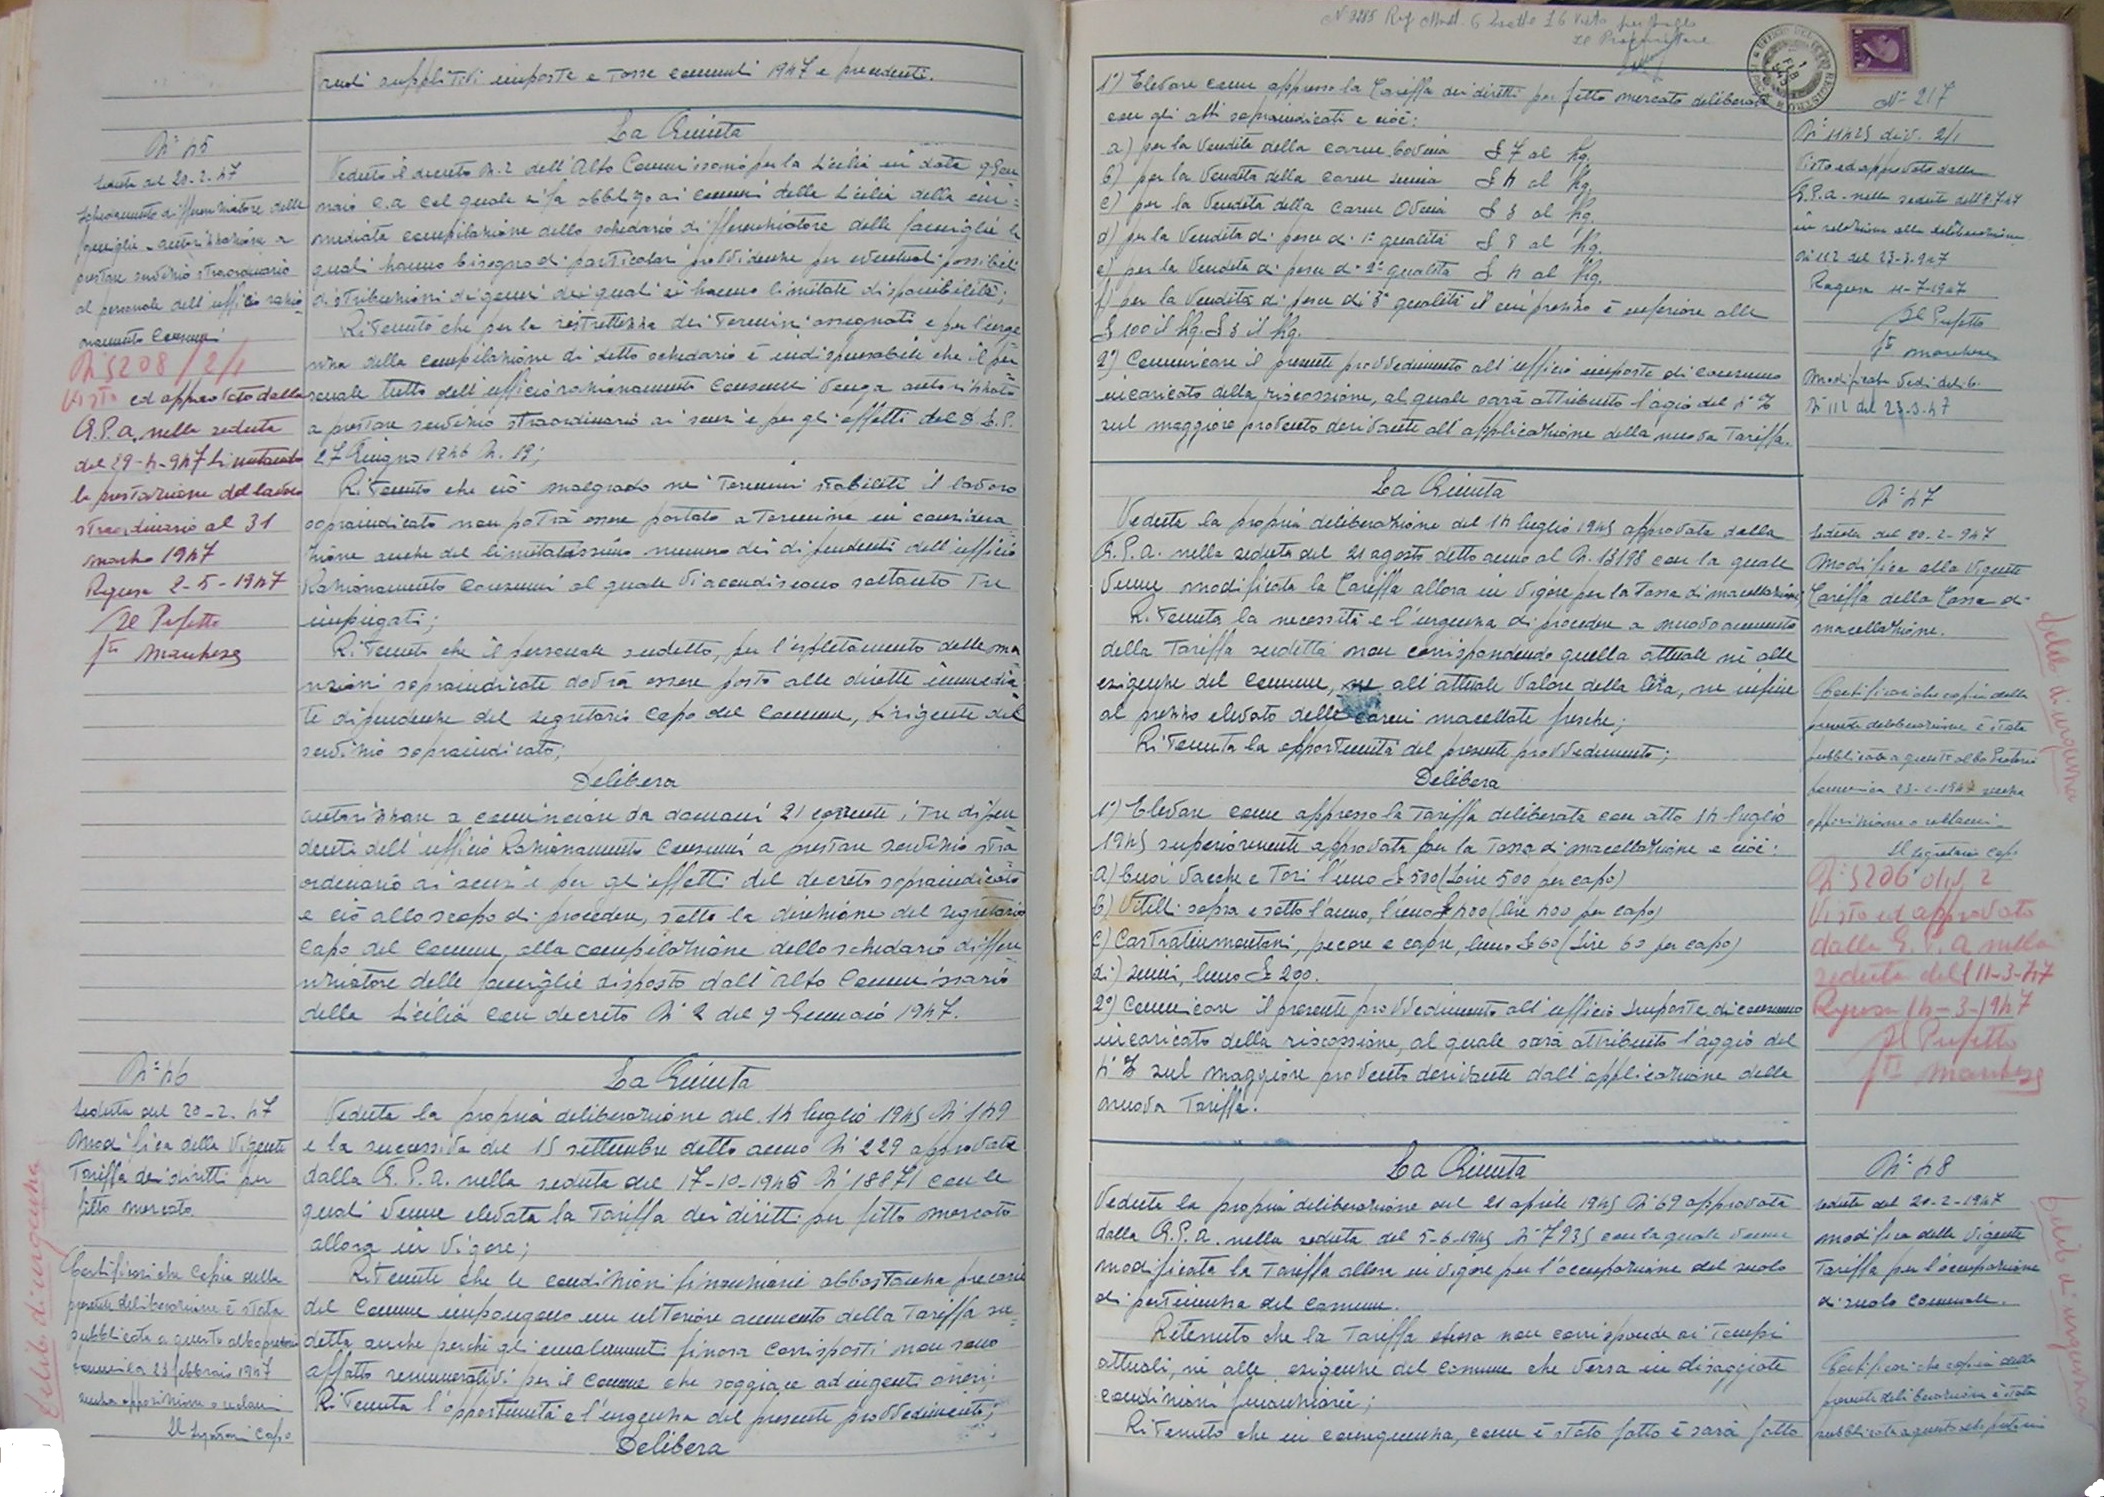 ruoli suppletivi imposte e tasse comunali 1947 e precedenti.
N° 45
Seduta del 20-2-47
Schedamento differenziatore delle
famiglie - autorizzazione a
prestare servizio straordinario
al personale dell'ufficio razio=
namento consumi
N° 5208/2/1
Visto ed approvato dalla
G.P.A. nella seduta
del 29-4-947 limitando
la prestazione del lavoro
straordinario al 31
marzo 1947
Ragusa 2-5-1947
Il Prefetto
f.to Marchese
La Giunta
Veduto il decreto N. 2 dell'Alto Commissario per la Sicilia in data 9 Gen
naio c.a col quale si fa obbligo ai comuni della Sicilia della im=
mediata compilazione dello schedario differenziatore delle famiglie le
quali hanno bisogno di particolari provvidenze per eventuali possibili
distribuzioni di generi dei quali si hanno limitate disponibilità;
Ritenuto che per la ristrettezza dei termini assegnati e per l'urge
nza della compilazione di detto schedario è indispensabile che il per=
sonale tutto dell'ufficio razionamento consumi venga autorizzato
a prestare servizio straordinario ai sensi e per gli effetti del D.L.P.
27 Giugno 1946 N. 19;
Ritenuto che ciò malgrado nei termini stabiliti il lavoro
sopraindicato non potrà essere portato a termine in considera
zione anche del limitatissimo numero dei dipendenti dell'ufficio
Razionamento consumi al quale vi accudiscono soltanto tre
impiegati;
Ritenuto che il personale sudetto, per l'espletamento delle ma
nzioni sopraindicate dovrà essere posto alle dirette immedia=
te dipendenze del segretario capo del Comune, dirigente del
servizio sopraindicato;
Delibera
autorizzare a cominciare da domani 21 corrente i tre dipen
denti dell'ufficio Razionamento Consumi a prestare servizio stra=
ordinario ai sensi e per gli effetti del decreto sopraindicato
e ciò allo scopo di procedere, sotto la direzione del segretario
capo del Comune, alla compilazione dello schedario differe
nziatore delle famiglie disposto dall'Alto Commissario
della Sicilia con decreto N° 2 del 9 Gennaio 1947.
N° 46
Seduta del 20-2-47
Modifica della vigente
Tariffa dei diritti per
fitto mercato
Certificasi che copia della
presente deliberazione è stata
pubblicata a questo albo pretorio
domenica 23 febbraio 1947
senza opposizioni o reclami
Il Segretario Capo
Delib. di urgenza
La Giunta
Veduta la propria deliberazione del 14 luglio 1945 N° 149
e la successiva del 15 settembre detto anno N° 229 approvate
dalla G.P.A. nella seduta del 17-10-1945 N° 18871 con le
quali venne elevata la tariffa dei diritti per fitto mercato
allora in vigore;
Ritenuto che le condizioni finanziarie abbastanza precarie
del Comune impongono un ulteriore aumento della tariffa su=
detta anche perché gli emolumenti finora corrisposti non sono
affatto remunerativi per il Comune che soggiace ad ingenti oneri;
Ritenuta l'opportunità e l'urgenza del presente provvedimento;
Delibera
1°) Elevare come appresso la Tariffa dei diritti per fitto mercato deliberata
con gli atti sopraindicati e cioè:
a) per la vendita della carne bovina £ 7 al Kg.
b) per la vendita della carne suina £ 4 al Kg.
c) per la vendita della carne ovina £ 3 al Kg.
d) per la vendita di pesce di 1ª qualità £ 8 al Kg.
e) per la vendita di pesce di 2ª qualità £ 4 al Kg.
f) per la vendita di pesce di 3ª qualità il cui prezzo è inferiore alle
£ 100 il Kg. £ 3 il Kg.
2°) Comunicare il presente provvedimento all'ufficio imposte di consumo
incaricato della riscossione, al quale sarà attribuito l'agio del 4%
sul maggiore provento derivante all'applicazione della nuova Tariffa.
N° 217
N° 11425 div. 2/1
Visto ed approvato dalla
G.P.A. nella seduta dell'8.7.47
in relazione alla deliberazione
N° 112 del 23-3-947
Ragusa 11-7-1947
Il Prefetto
f.to Marchese
Modificata vedi delib.
N° 112 del 23-3-47
La Giunta
Veduta la propria deliberazione del 14 luglio 1945 approvata dalla
G.P.A. nella seduta del 21 agosto detto anno al N. 13198 con la quale
venne modificata la Tariffa allora in vigore per la tassa di macellazione;
Ritenuta la necessità e l'urgenza di procedere a nuovo aumento
della Tariffa sudetta non corrispondendo quella attuale né alle
esigenze del Comune, né all'attuale valore della lira, né infine
al prezzo elevato delle carni macellate fresche;
Ritenuta la opportunità del presente provvedimento;
Delibera
1°) Elevare come appresso la Tariffa deliberata con atto 14 luglio
1945 superiormente approvata per la tassa di macellazione e cioè:
a) Buoi Vacche e Tori l'uno £ 500 (Lire 500 per capo)
b) Vitelli sopra e sotto l'anno, l'uno £ 400 (lire 400 per capo)
c) Castrati montoni, pecore e capre, l'uno £ 60 (Lire 60 per capo)
d) suini, l'uno £ 200.
2°) Comunicare il presente provvedimento all'ufficio Imposte di consumo
incaricato della riscossione, al quale sarà attribuito l'aggio del
4% sul maggiore provento derivante dall'applicazione della
nuova Tariffa.
N° 47
Seduta del 20-2-947
Modifica alla vigente
Tariffa della Tassa di
macellazione.
Certificasi che copia della
presente deliberazione è stata
pubblicata a questo albo Pretorio
domenica 23-2-1947 senza
opposizione o reclami
Il Segretario Capo
N° 5206 div. 2
Visto ed approvato
dalla G.P.A. nella
seduta dell'11-3-47
Ragusa 14-3-1947
Il Prefetto
f.to Marchese
Delib di urgenza
La Giunta
Veduta la propria deliberazione del 21 aprile 1945 N° 69 approvata
dalla G.P.A. nella seduta del 5-6-1945 N° 7935 con la quale venne
modificata la Tariffa allora in vigore per l'occupazione del suolo
di pertinenza del Comune.
Ritenuto che la Tariffa stessa non corrisponde ai tempi
attuali, né alle esigenze del Comune che versa in disagiate
condizioni finanziarie;
Ritenuto che in conseguenza, come è stato fatto e sarà fatto
N° 48
Seduta del 20-2-1947
modifica della vigente
Tariffa per l'occupazione
di suolo Comunale.
Certificasi che copia della
presente deliberazione è stata
pubblicata a questo albo pretorio
Delib di urgenza